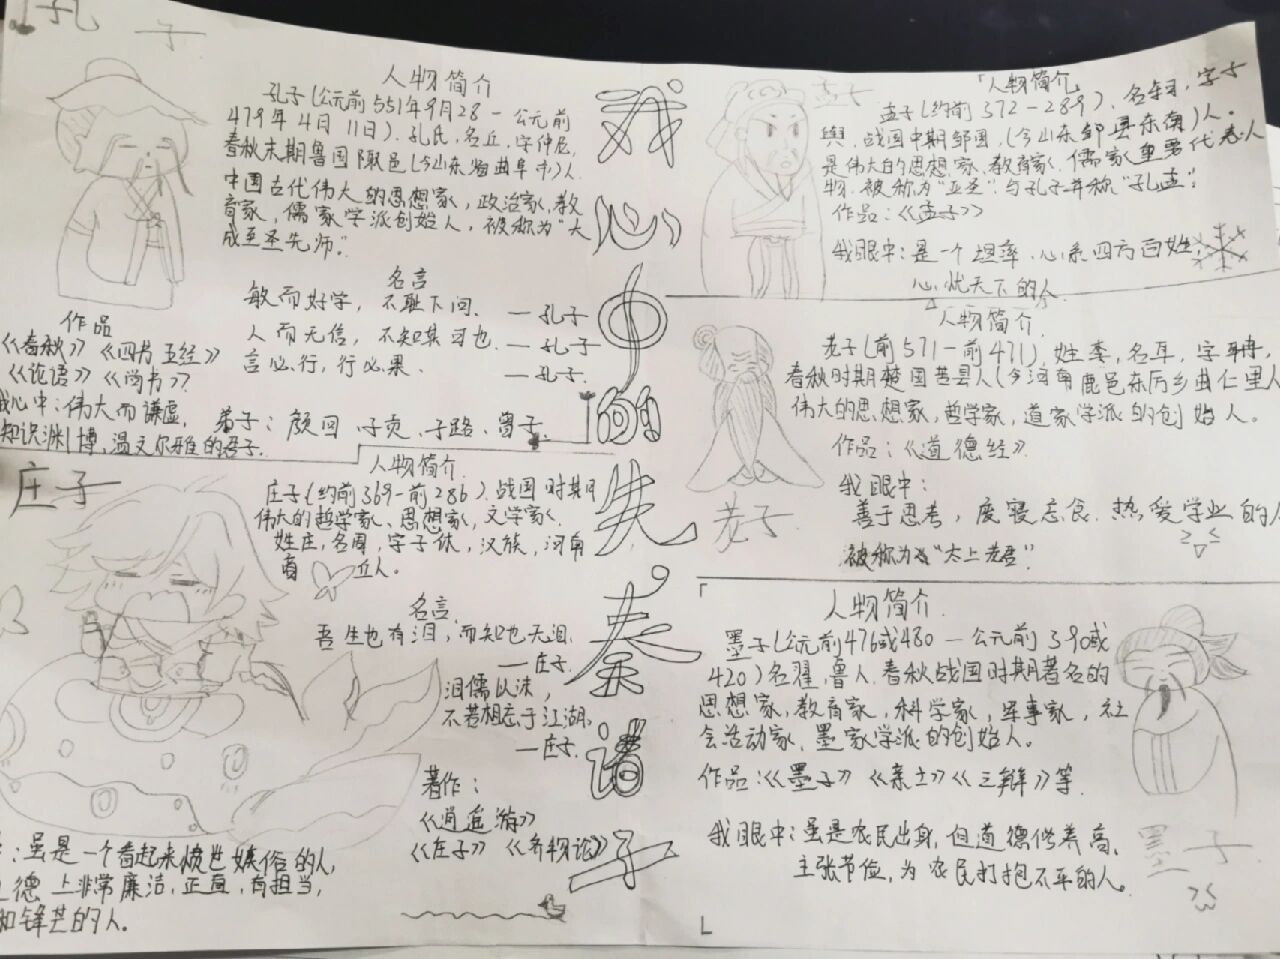 孔子
人物简介
孔子(公元前551年9月28-公元前
479年4月11日).孔氏,名丘,字仲尼,
春秋末期鲁国陬邑(今山东省曲阜市)人.
中国古代伟大的思想家,政治家,教
育家,儒家学派创始人,被称为"大
成至圣先师".
名言
敏而好学,不耻下问.—孔子
人而无信,不知其可也.—孔子
言必行,行必果.—孔子.
作品
《春秋》《四书五经》
《论语》《尚书》
我心中:伟大而谦虚,
知识渊博,温文尔雅的君子.
弟子:颜回、子贡、子路、曾子.
庄子
人物简介
庄子(约前369-前286).战国时期
伟大的哲学家、思想家,文学家.
姓庄,名周,字子休,汉族,河南
商丘人.
名言.
吾生也有泪,而知也无泪.
—庄子.
泪儒以沫,
不若相忘于江湖.
—庄子.
著作:
《逍遥游》
《庄子》《齐物论》
:虽是一个看起来愤世嫉俗的人,
德上非常廉洁,正直,有担当,
和锋芒的人.
我
心
中
的
先
秦
诸
子
「人物简介」
孟子
孟子(约前372-289),名轲,字子
舆,战国中期邹国,(今山东邹县东南)人.
是伟大的思想家、教育家、儒家重要代表人
物.被称为"亚圣".与孔子并称"孔孟".
作品:《孟子》
我眼中:是一个坦率、心系四方百姓,
心忧天下的人
人物简介
老子(前571-前471),姓李,名耳,字聃,
春秋时期楚国苦县人(今河南鹿邑东厉乡曲仁里人
伟大的思想家,哲学家,道家学派的创始人.
作品:《道德经》
我眼中:
善于思考,废寝忘食.热爱学业的人
被称为"太上老君".
老子
人物简介.
墨子(公元前476或480—公元前390或
420)名翟,鲁人.春秋战国时期著名的
思想家,教育家,科学家,军事家,社
会活动家、墨家学派的创始人.
作品:《墨子》《亲士》《三辩》等.
我眼中:虽是农民出身,但道德修养高,
主张节俭,为农民打抱不平的人.
墨子